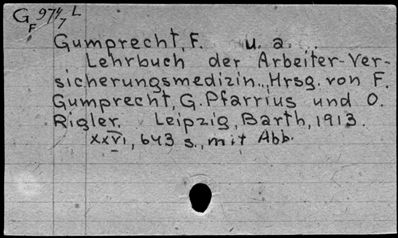 G 974/7 L
F
Gumprecht, F. u. a. ...
Lehrbuch der Arbeiter-Ver-
sicherungsmedizin., Hrsg. von F.
Gumprecht, G. Pfarrius und O.
Rigler. Leipzig, Barth, 1913.
XXVI, 643 s., mit Abb.